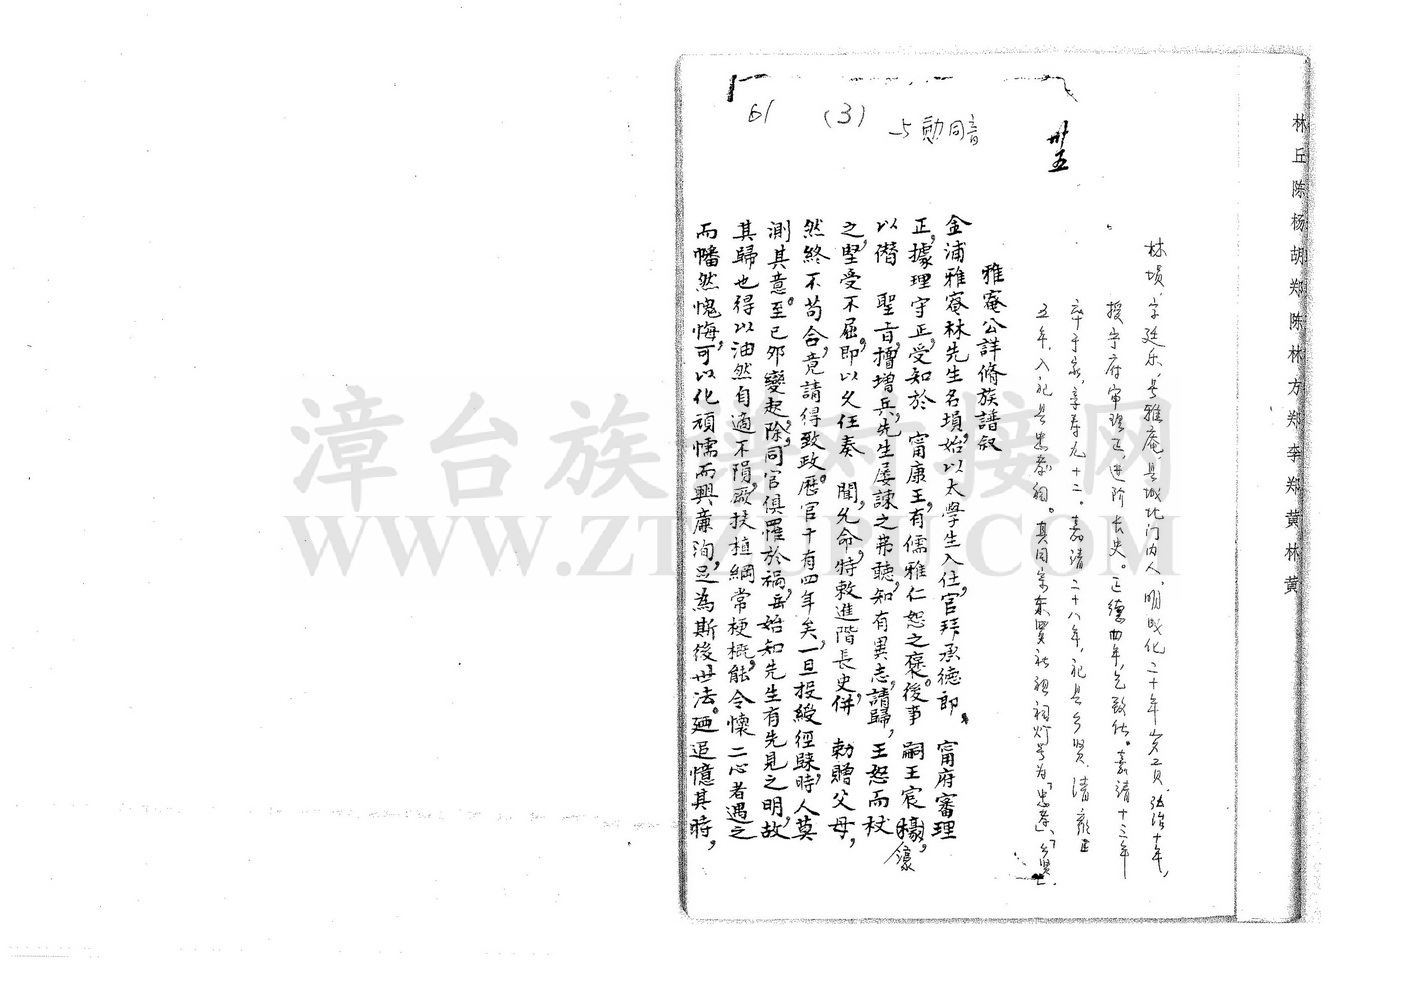 林丘陈杨胡郑陈林方郑李郑黄林黄
61 (3) 与勋同音
卅五
林埙,字廷乐,号雅庵,县城北门内人,明成化二十年岁贡,弘治十年,
授宁府审理正,进阶长史。正德四年,乞致仕。嘉靖十三年
卒于家,享寿九十二。嘉靖二十八年,祀县乡贤,清雍正
五年,入祀县忠孝祠。其同宗东
雅菴公詳脩族譜叙
金浦雅菴林先生名塤,始以太學生入仕,官拜承德郎。甯府審理
正,據理守正,受知於 甯康王,有儒雅仁恕之褒。後事 嗣王宸濠,
濠
以僭 聖旨,擅增兵,先生屡諫之弗聽,知有異志,請歸,王怒而杖
之,堅受不屈,即以久任奏 聞,允命,特敕進階長史,併 勅贈父母,
然終不苟合,竟請得致政。歷官十有四年矣,一旦投綬徑歸,時人莫
測其意。至己夘變起,除同官俱罹於禍,毋始知先生有先見之明,故
其歸也得以油然自適不隕厥扶植綱常梗概,能令懷二心者遇之
而幡然愧悔,可以化頑懦而興廉洵,足為斯後世法。廼追憶其時,
漳台族谱对接网
WWW.ZTZUPU.COM